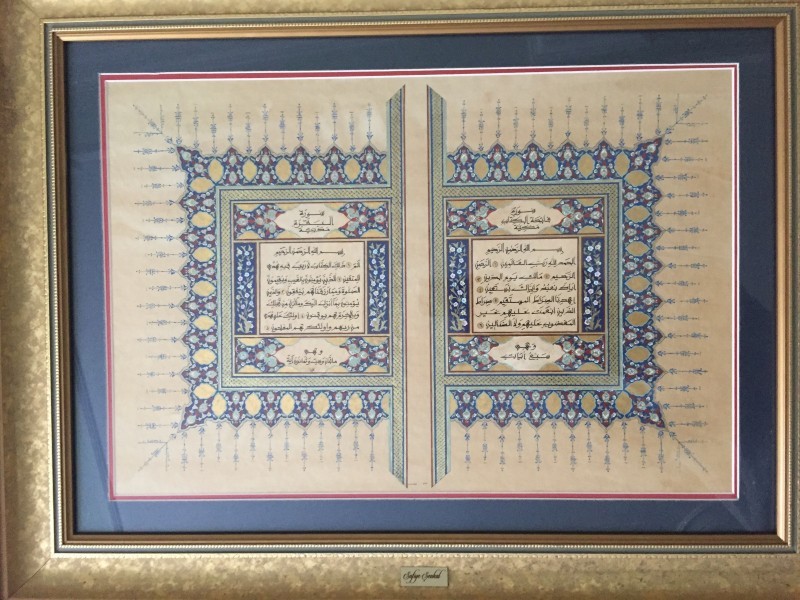 سورة
فاتحة الكتاب
مكية
بسم الله الرحمن الرحيم
الحمد لله رب العالمين الرحمن
الرحيم مالك يوم الدين
اياك نعبد واياك نستعين
اهدنا الصراط المستقيم صراط
الذين انعمت عليهم غير
المغضوب عليهم ولا الضالين
وهي
سبع ايات
سورة
البقرة
بسم الله الرحمن الرحيم
الم ذلك الكتاب لا ريب فيه هدى
للمتقين الذين يؤمنون بالغيب ويقيمون
الصلوة ومما رزقناهم ينفقون والذين
يؤمنون بما انزل اليك وما انزل من قبلك
وبالاخرة هم يوقنون اولئك على هدى
من ربهم واولئك هم المفلحون
وهي